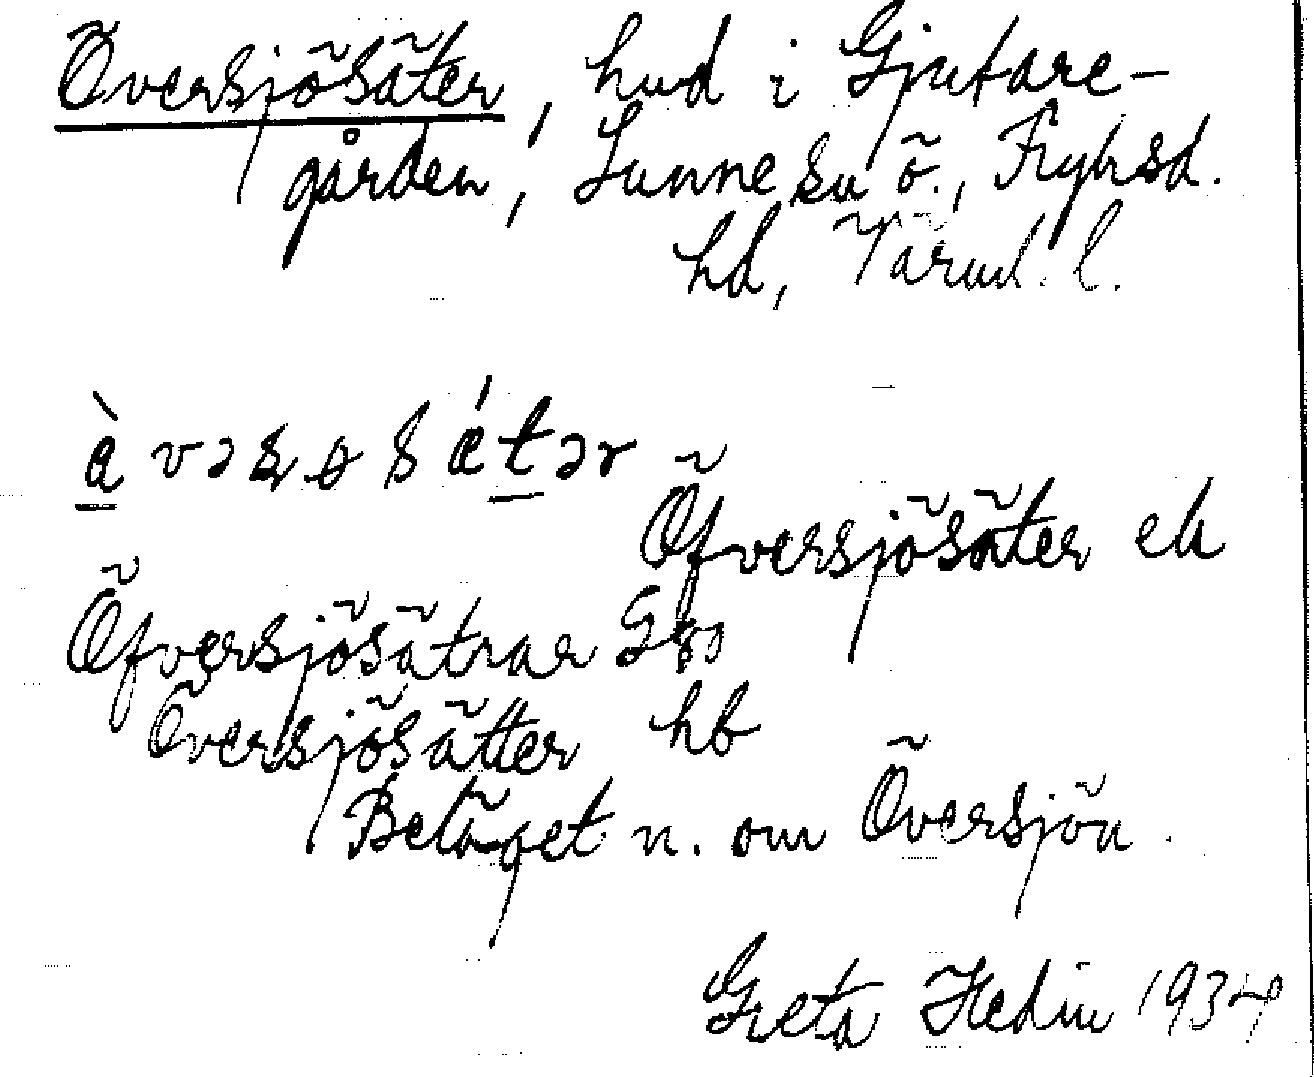 Översjösäter, hud i Gjutare-
gården, Sunne sn ö., Fryksd.
hd, Värml. l.
à vəʂɵsǽtər
Öfversjösäter ek
Öfversjösätrar G
Översjösätter hb
Beläget n. om Översjön.
Greta Hedin 1934